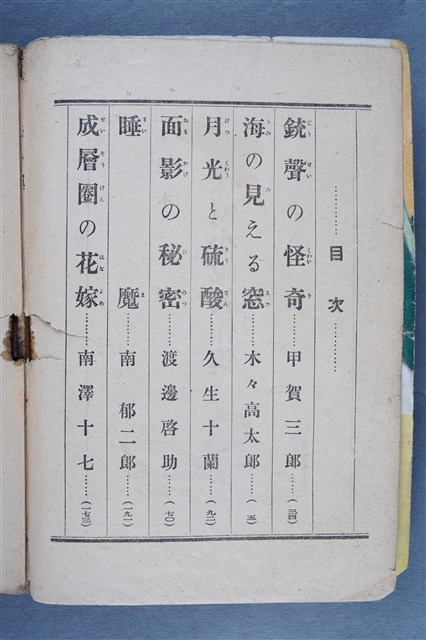 ……目次……
銃聲の怪奇……甲賀三郎……(三四)
海の見える窓……木々高太郎……(五)
月光と硫酸……久生十蘭……(九二)
面影の秘密……渡邊啓助……(七〇)
睡魔……南郁二郎……(一九一)
成層圏の花嫁……南澤十七……(一七三)